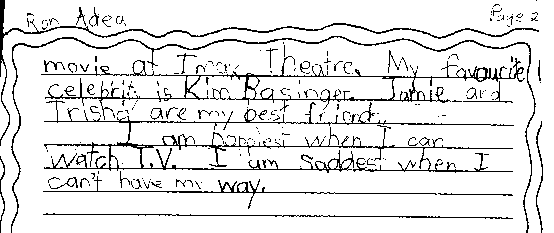 Ron Adea
Page 2
movie at Imax Theatre. My favourite
celebrity is Kim Basinger. Jamie and
Trisha are my best friends.
I am happiest when I can
watch T.V. I am saddest when I
can't have my way.